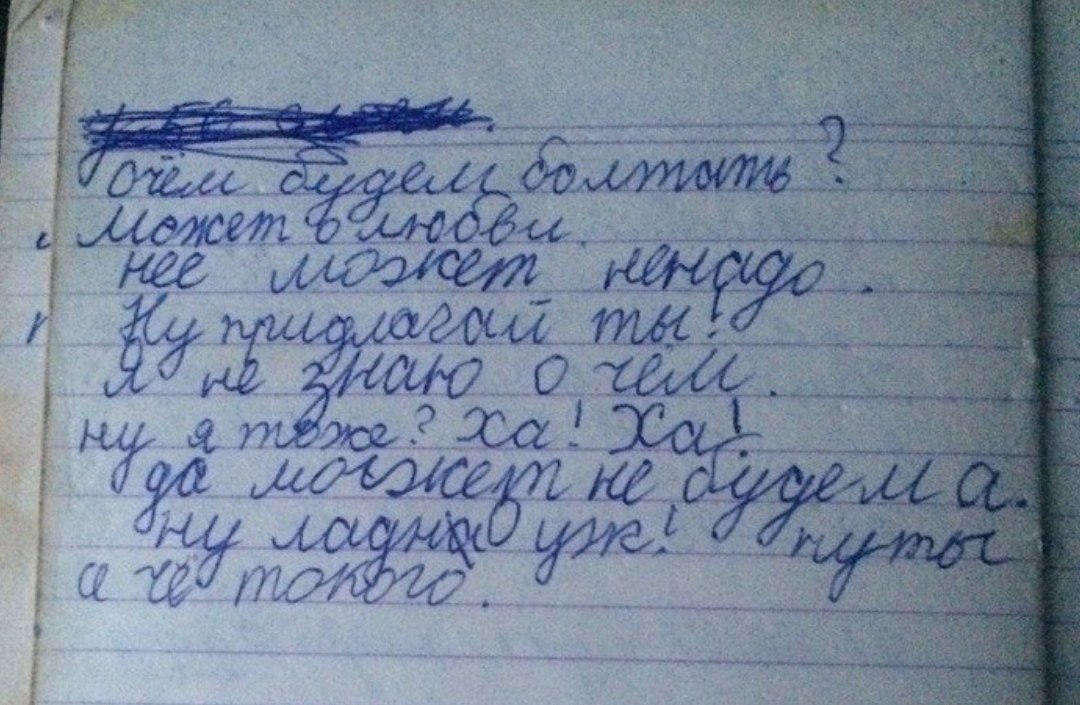 очём будем болтать?
Может в любви.
нее может ненадо.
Ну придлагай ты!
Я не знаю о чём.
ну я тоже? Ха! Ха!
да может не будем а.
ну ладно уж! ну ты
а чё токого.